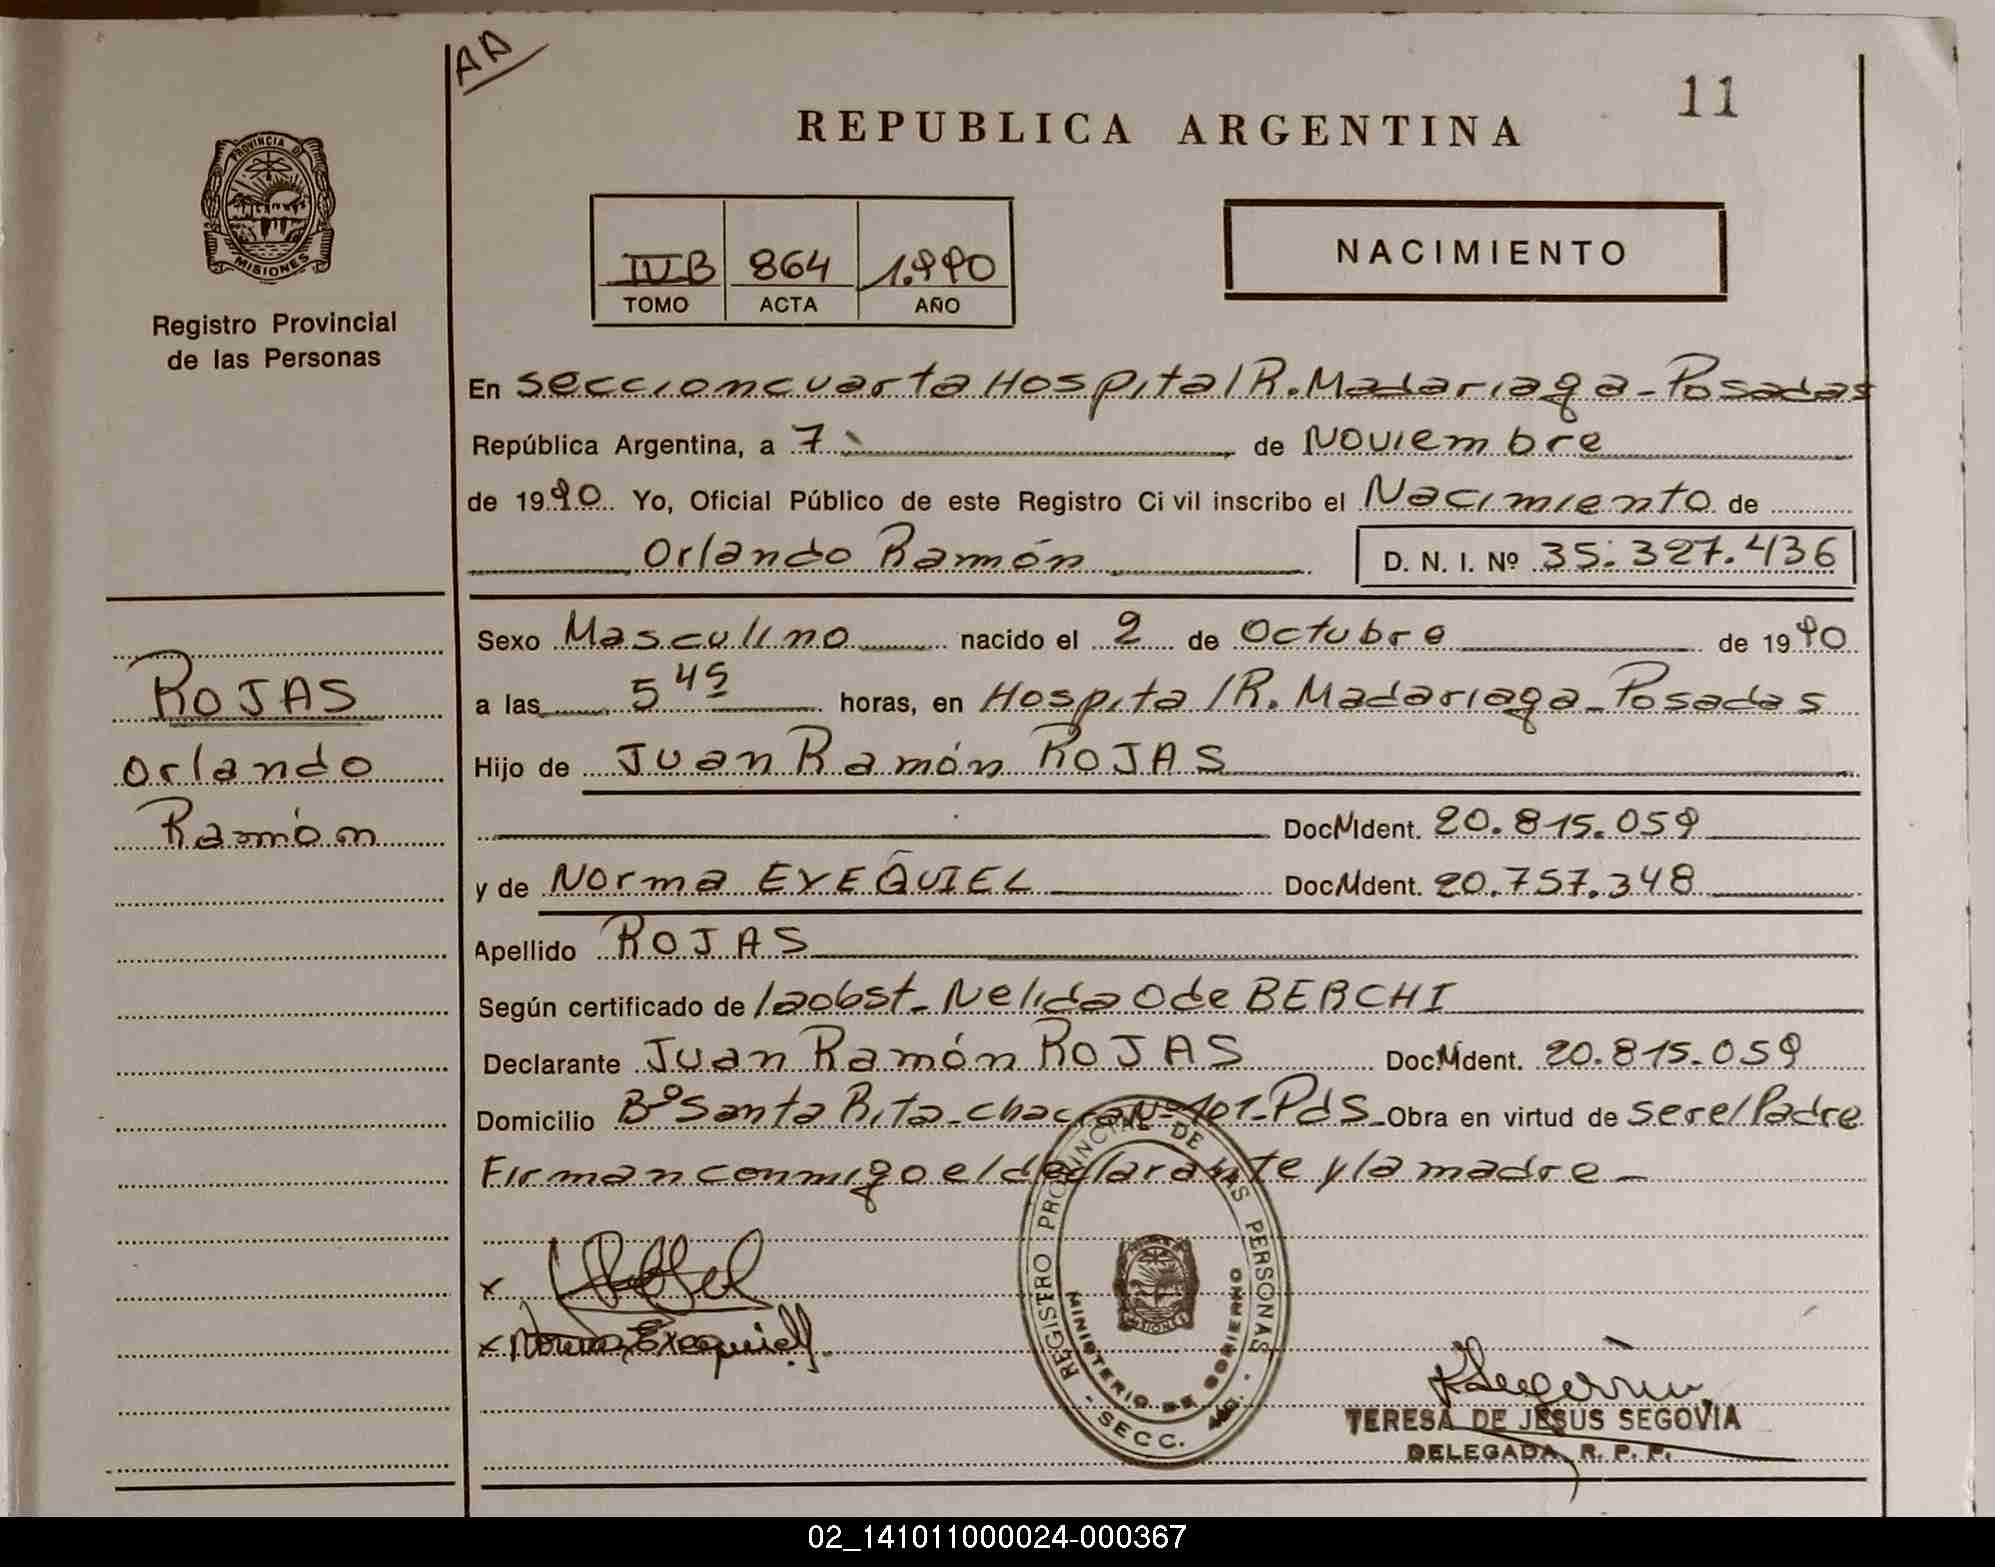 AA
11
REPUBLICA ARGENTINA
PROVINCIA DE
MISIONES
Registro Provincial
de las Personas
IV B 864 1.990
TOMO ACTA AÑO
NACIMIENTO
En Sección cuarta Hospital R. Madariaga - Posadas
República Argentina, a 7 de Noviembre
de 1990 Yo, Oficial Público de este Registro Civil inscribo el Nacimiento de
Orlando Ramón D. N. I. Nº 35.327.436
Sexo Masculino nacido el 2 de Octubre de 1990
a las 5 45 horas, en Hospital R. Madariaga - Posadas
ROJAS
Orlando
Ramón
Hijo de Juan Ramón ROJAS
Doc. Ident. 20.815.059
y de Norma EXEQUIEL Doc. Ident. 20.757.348
Apellido ROJAS
Según certificado de la obst. Nelida O de BERCHI
Declarante Juan Ramón ROJAS Doc. Ident. 20.815.059
Domicilio Bº Santa Rita - chacra Nº 101 - Pds - Obra en virtud de ser el Padre
Firman conmigo el declarante y la madre -
x
x Norma Exequiel
REGISTRO PROVINCIAL DE LAS PERSONAS
MINISTERIO DE GOBIERNO
SECC. 4ta.
MISIONES
TERESA DE JESUS SEGOVIA
DELEGADA R. P. P.
02_141011000024-000367